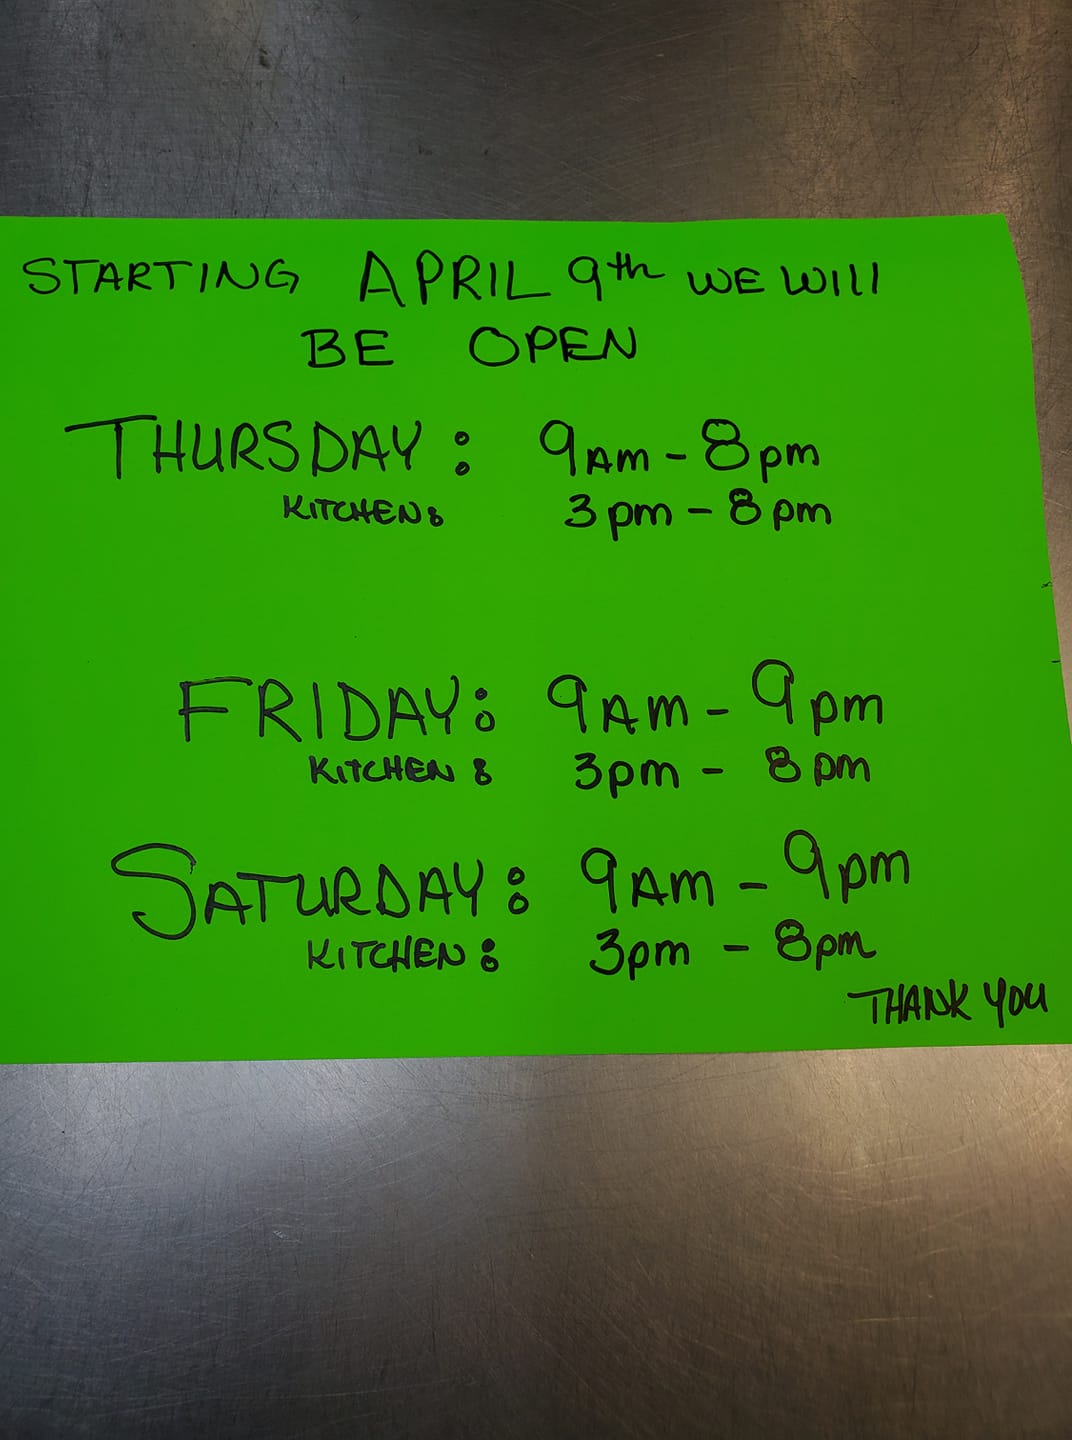 STARTING APRIL 9th WE WILL
BE OPEN
THURSDAY: 9AM - 8pm
KITCHEN: 3pm - 8pm
FRIDAY: 9AM - 9pm
KITCHEN: 3pm - 8pm
SATURDAY: 9AM - 9pm
KITCHEN: 3pm - 8pm
THANK YOU